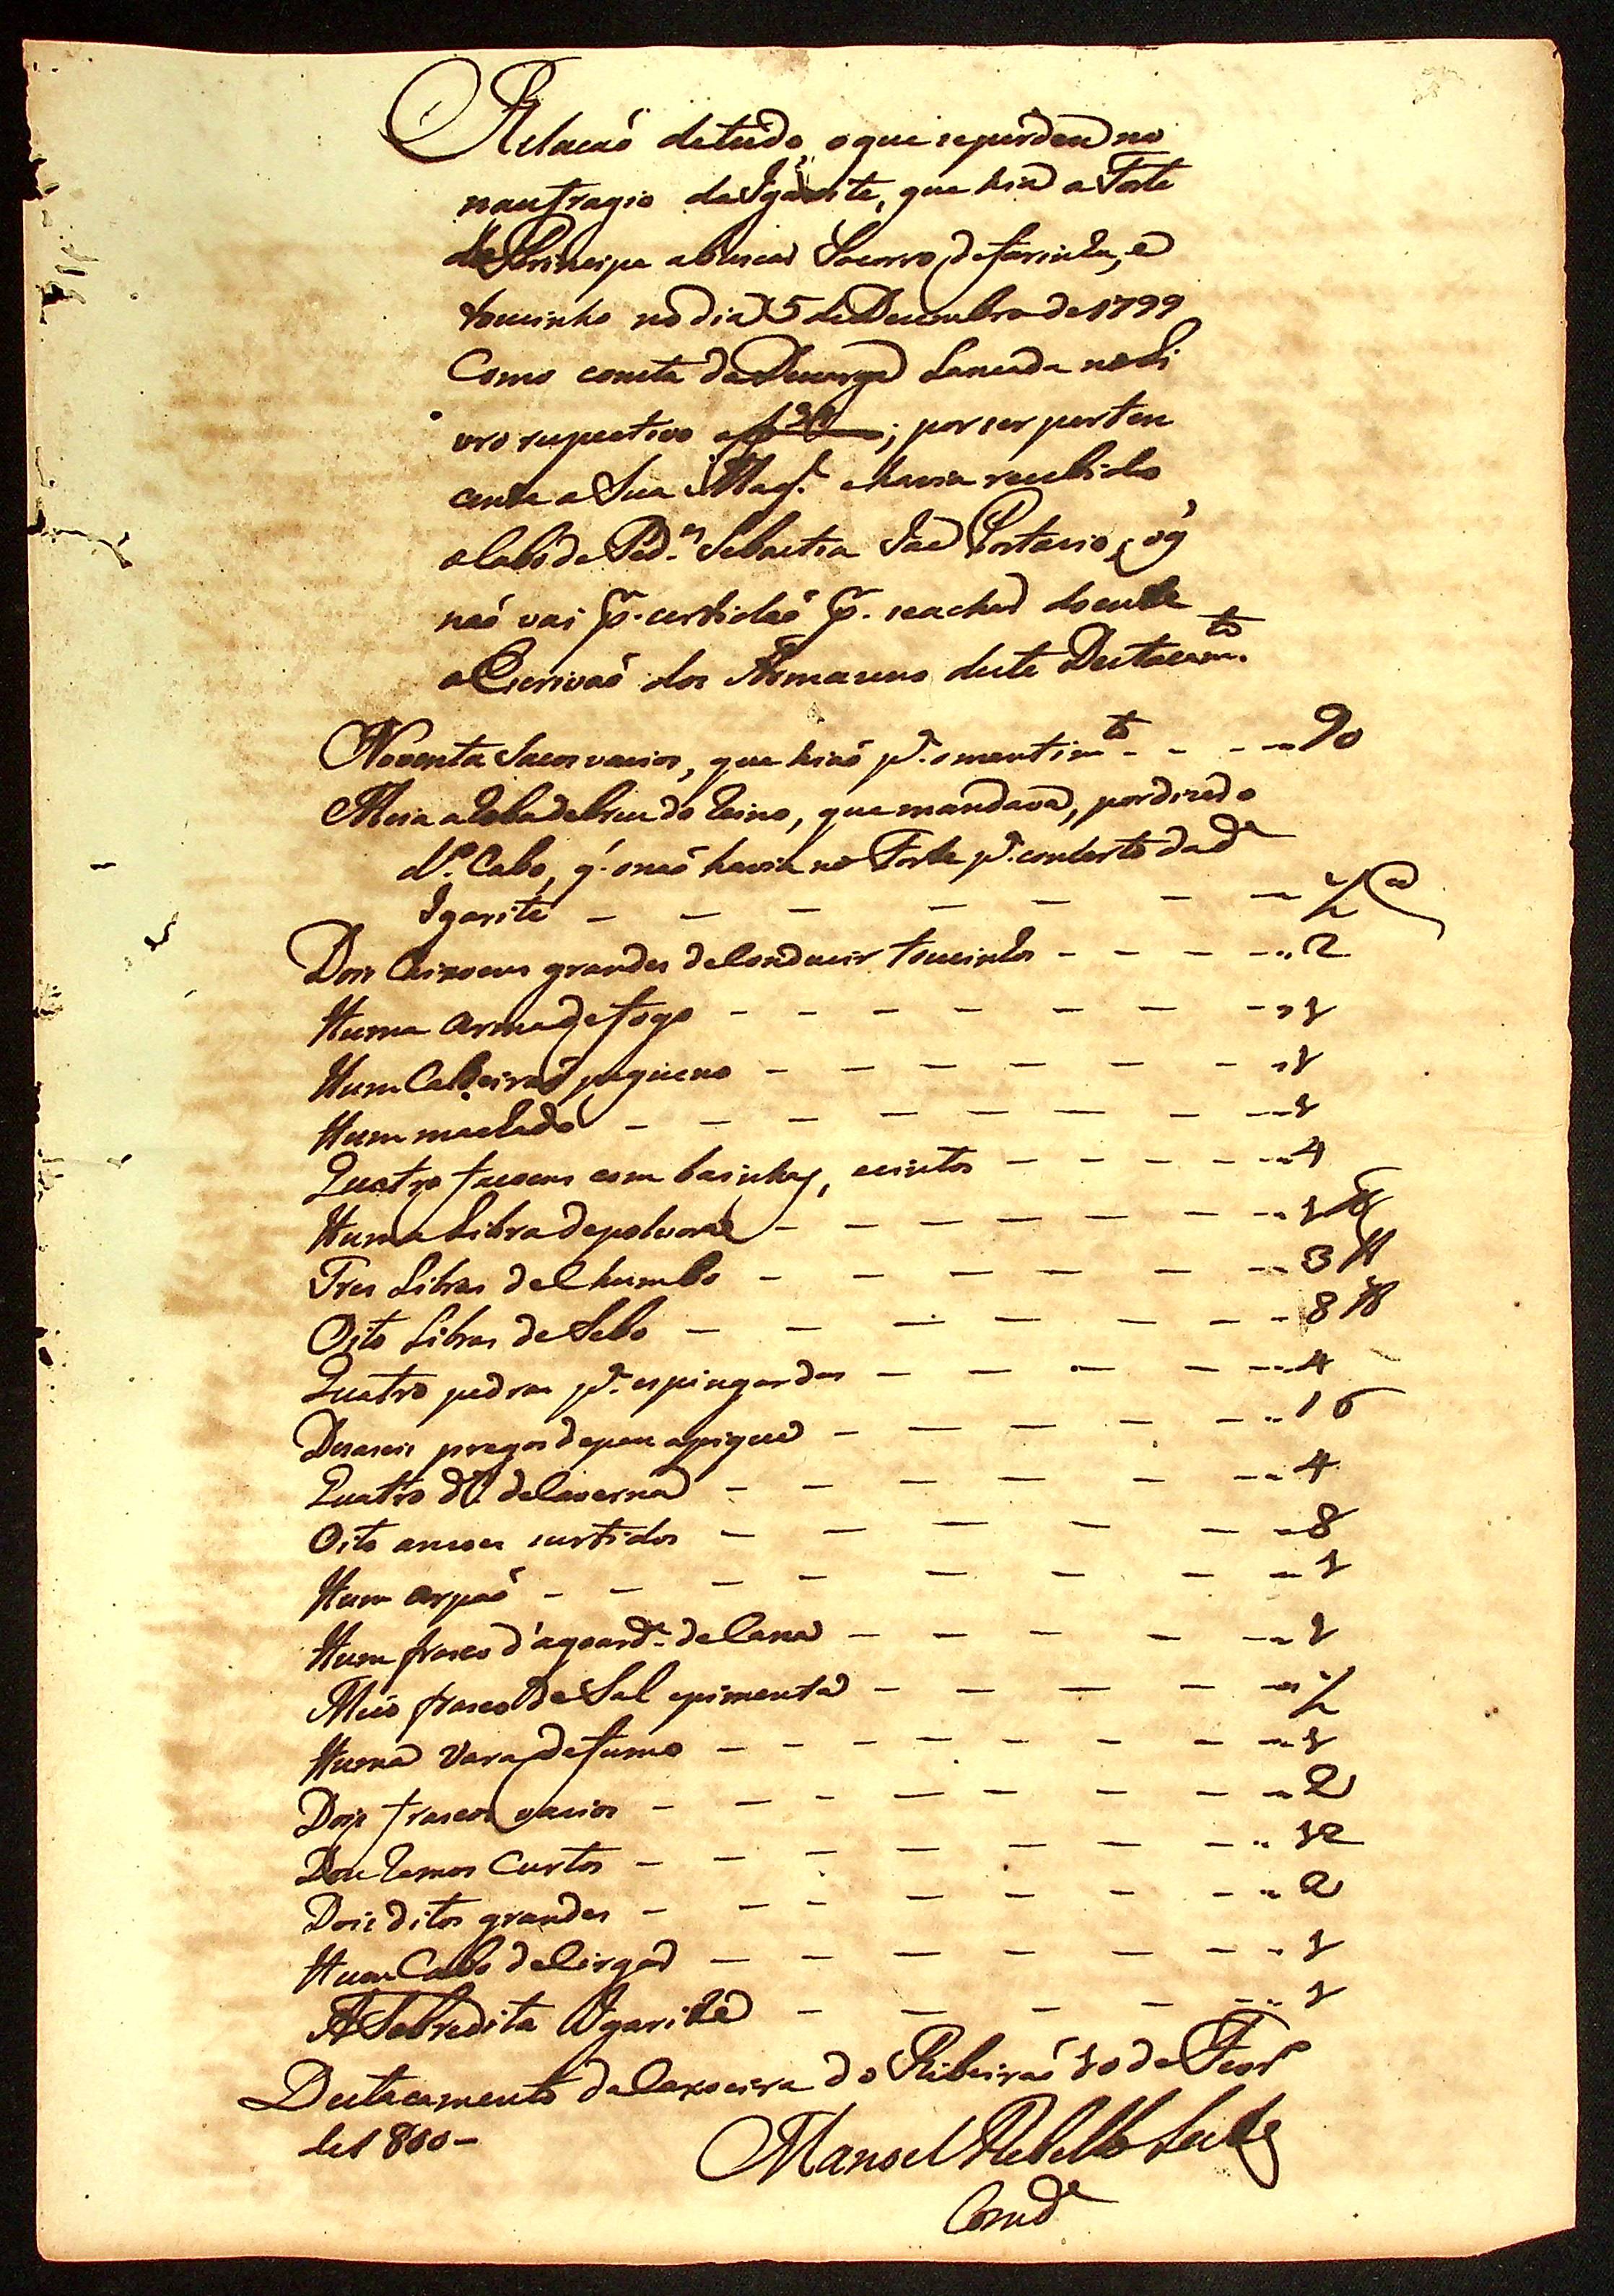 Relacaõ detudo oque seperdeu no
naufragio da Igarite, que hia a Forte
do Principe abuscar Socorro de farinha, e
toucinho no dia 5 de Dezembro de 1799
Como consta da Descarga Lancada no Li
vro respectivo af 39; por ser perten
cente a Sua Mag.e e havia recebido
o Cabo de Ped.es Sebastiaõ Joze ; oq̃
naõ vai p.r certidaõ p.r seachar doente
o Escrivaõ dos Armazens deste Destacam.to
Noventa Sacos vazios, que hiaõ p.a omantim.to - - - - 90
Meia aroba de breu do Reino, que mandava, por dizer o
d.o Cabo, q̃ onaõ havia no Forte p.a conserto da d.a
Igarité - - - - - - - ½ @
Dois Caixoens grandes de Conduzir toucinhos - - - - 2
Huma arma de fogo - - - - - - - 1
Hum Caldeiraõ pequeno - - - - - - - 1
Hum machado - - - - - - - - 1
Quatro facoens com bainhas, ecintos - - - - - 4
Huma Libra depolvora - - - - - - - 1 ℔
Tres Libras de Chumbo - - - - - - 3 ℔
Oito Libras de Sebo - - - - - - - 8 ℔
Quatro pedras p.a espingardas - - - - - 4
Dezaseis pregos depau apique - - - - - 16
Quatro d.os de Caverna - - - - - - 4
Oito anzoes surtidos - - - - - - 8
Hum arpaõ - - - - - - - - 1
Hum frasco d'agoard.e de Cana - - - - - 1
Meio frasco de Sal epimenta - - - - - ½
Huma Vara de fumo - - - - - - - - 1
Dois frascos vazios - - - - - - - - 2
Doze Remos Curtos - - - - - - - 12
Dois ditos grandes - - - - - - - 2
Hum Cabo de Cirga - - - - - - - 1
A Sobredita Igarité - - - - - 1
Destacamento da Caxoeira do Ribeiraõ 10 de Fevr.o
de 1800 -
Manoel Rebello Leite
Com.de